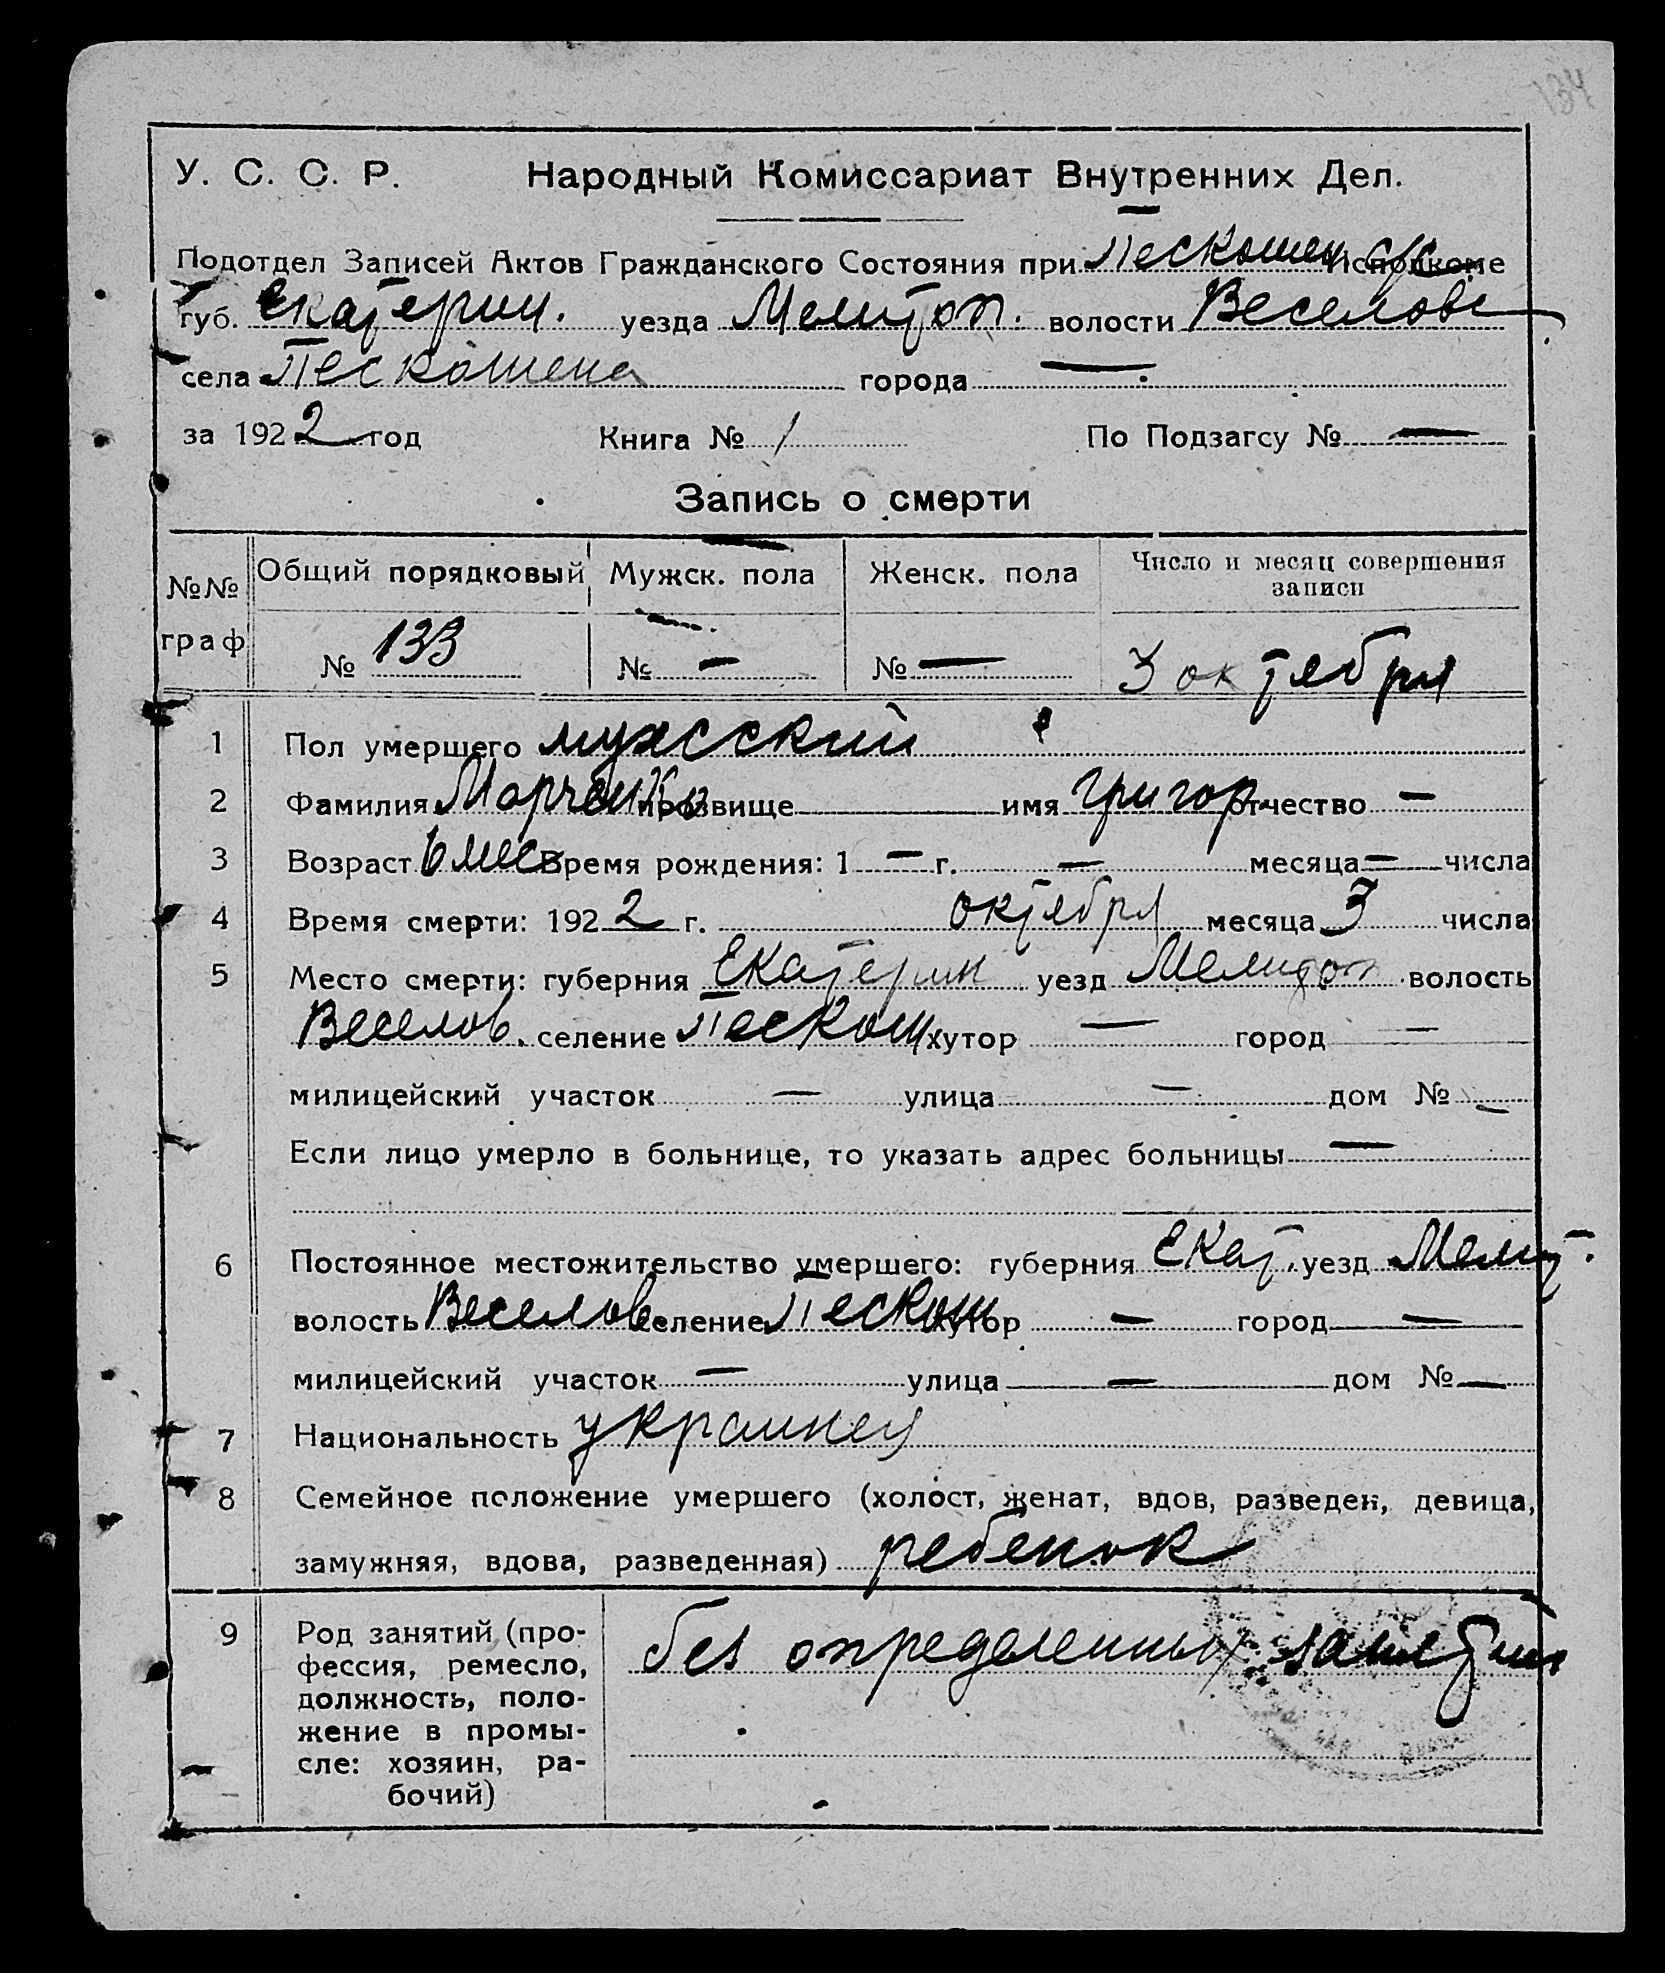 134
У. С. С. Р. Народный Комиссариат Внутренних Дел.
Подотдел Записей Актов Гражданского Состояния при Пескошен с/с Исполкоме
губ. Екатерин. уезда Мелитоп. волости Веселовс
села Пескошена города —
за 1922 год Книга № 1 По Подзагсу № —
Запись о смерти
№№ граф Общий порядковый Мужск. пола Женск. пола Число и месяц совершения записи
№ 133 № — № — 3 октября
1 Пол умершего мужсский
2 Фамилия Марченко прозвище имя Григор отчество —
3 Возраст 6 мес Время рождения: 1 — г. — месяца — числа
4 Время смерти: 1922 г. октября месяца 3 числа
5 Место смерти: губерния Екатерин уезд Мелитоп волость
Веселов. селение Пескош хутор — город —
милицейский участок — улица — дом № —
Если лицо умерло в больнице, то указать адрес больницы —
6 Постоянное местожительство умершего: губерния Екат. уезд Мелит.
волость Веселов. селение Пескош хутор — город —
милицейский участок — улица — дом № —
7 Национальность украинец
8 Семейное положение умершего (холост, женат, вдов, разведен, девица,
замужняя, вдова, разведенная) ребенок
9 Род занятий (про-
фессия, ремесло,
должность, поло-
жение в промы-
сле: хозяин, ра-
бочий)
без определенных занятий